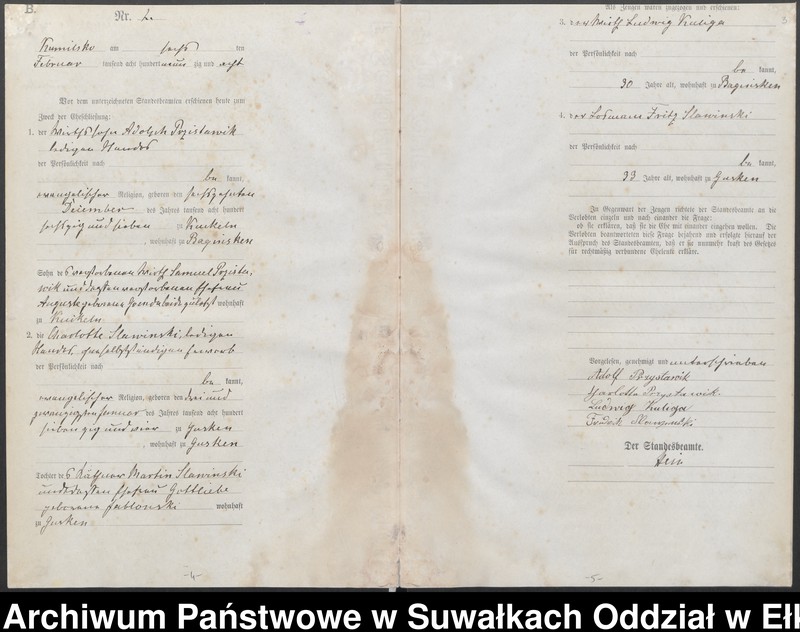 B.
Nr. 2.
Kumilsko am sechs ten
Februar tausend acht hundert neun zig und acht
Vor dem unterzeichneten Standesbeamten erschienen heute zum
Zweck der Eheschließung:
1. der Wirthssohn Adolph
ledigen Standes
der Persönlichkeit nach
be kannt,
evangelischer Religion, geboren den sechszehnten
Dezember des Jahres tausend acht hundert
sechszig und sieben zu
, wohnhaft zu Baginsken
Sohn des verstorbenen Wirth Samuel
und dessen verstorbenen Ehefrau
Auguste geborene beide zuletzt wohnhaft
zu
2. die Charlotte Slawinski, ledigen
Standes,
der Persönlichkeit nach
be kannt,
evangelischer Religion, geboren den drei und
zwanzigsten Januar des Jahres tausend acht hundert
sieben zig und vier zu Gusken
, wohnhaft zu Gusken
Tochter des Käthner Martin Slawinski
und dessen Ehefrau Gottliebe
geborene Jablonski wohnhaft
zu Gusken
-4-
Als Zeugen waren zugezogen und erschienen:
3. der Wirth Ludwig Kuliga
der Persönlichkeit nach
be kannt,
30 Jahre alt, wohnhaft zu Baginsken
4. der Losmann Fritz Slawinski
der Persönlichkeit nach
be kannt,
33 Jahre alt, wohnhaft zu Gusken
In Gegenwart der Zeugen richtete der Standesbeamte an die
Verlobten einzeln und nach einander die Frage:
ob sie erklären, daß sie die Ehe mit einander eingehen wollen. Die
Verlobten beantworteten diese Frage bejahend und erfolgte hierauf der
Ausspruch des Standesbeamten, daß er sie nunmehr kraft des Gesetzes
für rechtmäßig verbundene Eheleute erkläre.
Vorgelesen, genehmigt und unterschrieben
Adolf Przystawik
Charlotte Przystawik
Ludwig Kuliga
Der Standesbeamte.
-5-
Archiwum Państwowe w Suwałkach Oddział w Ełk